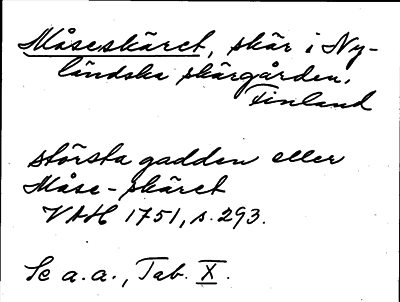 Måseskäret, skär i Ny-
ländska skärgården,
Finland
största gadden eller
Måse-skäret
VAH 1751, s. 293.
Se a.a., Tab. X.